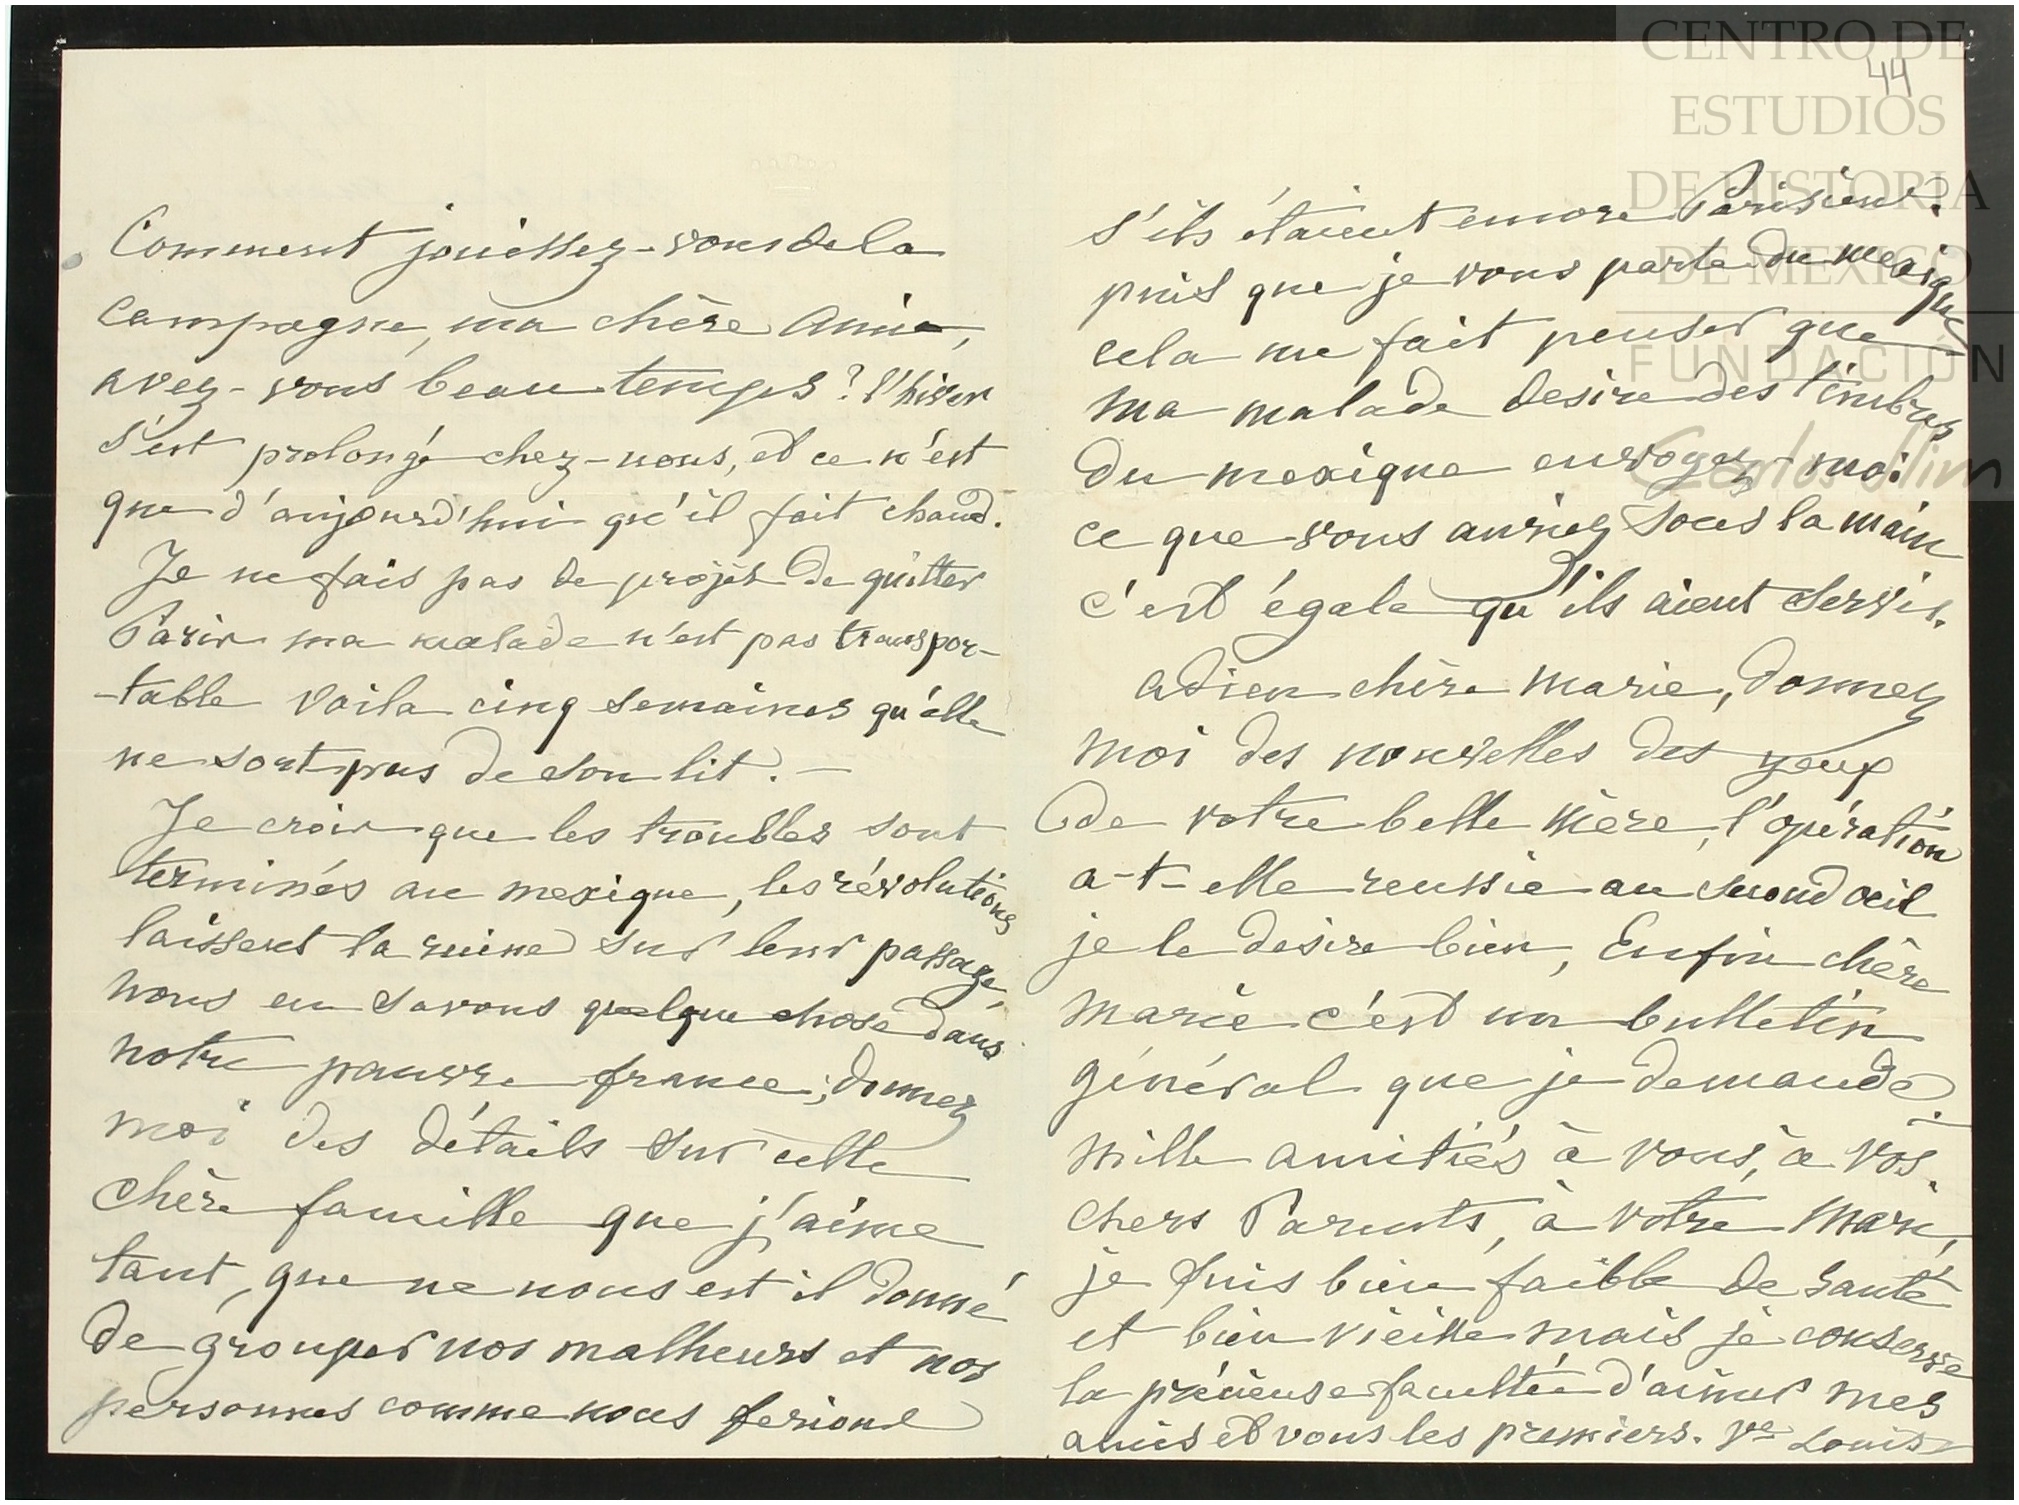 Comment jouissez-vous de la
campagne, ma chère amie,
avez-vous beau temps? l'hiver
s'est prolongé chez-nous, et ce n'est
que d'aujourd'hui qu'il fait chaud.
Je ne fais pas de projets de quitter
Paris ma malade n'est pas transpor-
-table voila cinq semaines qu'elle
ne sort pas de son lit. —
Je crois que les troubles sont
terminés au mexique, les révolutions
laissent la ruine sur leur passage,
nous en savons quelque chose dans
notre pauvre france, donnez
moi des détails sur cette
chère famille que j'aime
tant, que ne nous est il donné
de grouper nos malheurs et nos
personnes comme nous ferions
44
s'ils étaient encore Parisiens.
puis que je vous parle du mexique
cela me fait penser que
ma malade desire des timbres
du mexique envoyez-moi
ce que vous auriez sous la main
c'est égale qu'ils aient servis.
adieu chère marie, donnez
moi des nouvelles des yeux
de votre belle mère, l'opération
a-t-elle reussie au second oeil
je le desire bien, Enfin chère
marie c'est un bulletin
général que je demande.
mille amitiés à vous, à vos
chers Parents, à votre mari,
je suis bien faible de santé
et bien vieille mais je conserve
la précieuse facultée d'aimer mes
amis et vous les premiers. Ve Louis
CENTRO DE
ESTUDIOS
DE HISTORIA
DE MEXICO
FUNDACIÓN
Carlos Slim